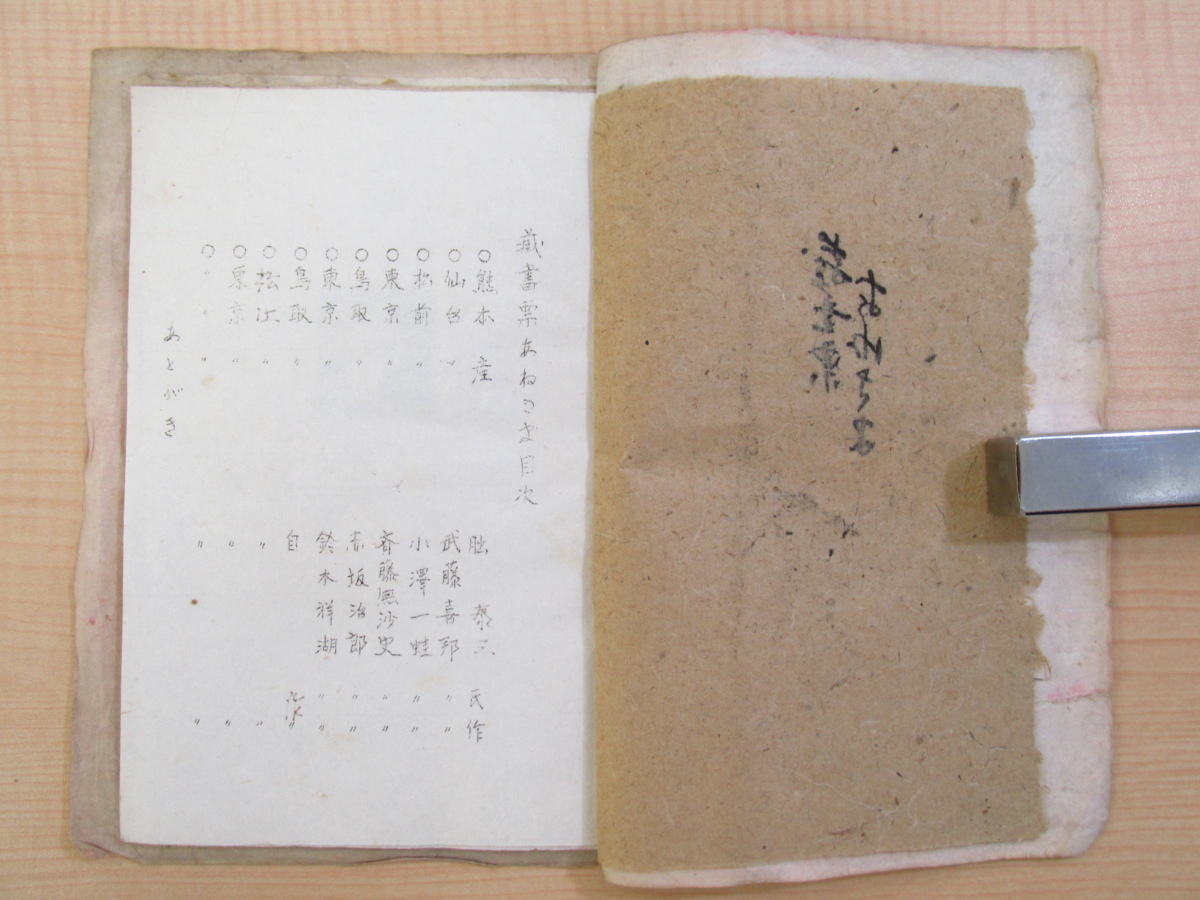 蔵書票
あねさま
藏書票あねさま目次
○熊本産 朏 泰三氏作
○仙台〃 武藤喜邦〃〃
○松前〃 小澤一蛙〃〃
○東京〃 斎藤無沙史〃〃
○鳥取〃 赤坂治郎〃〃
○東京〃 鈴木祥湖〃〃
○鳥取〃 自 作〃
○松江〃 〃 〃
○東京〃 〃 〃
○〃〃 〃 〃
あとがき